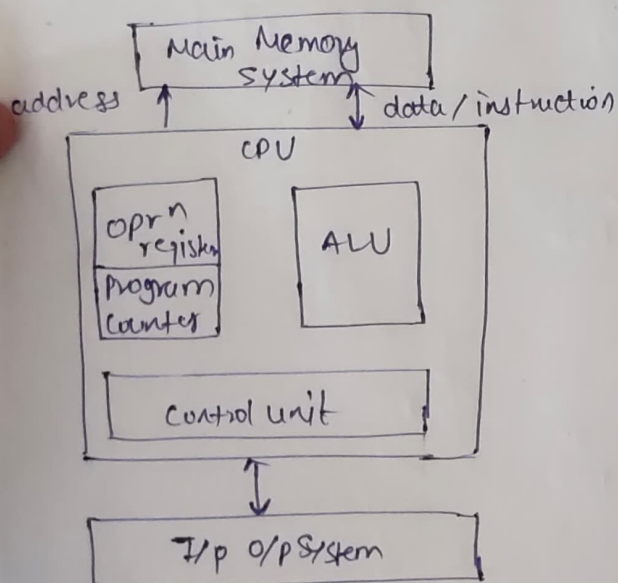 Main Memory
system
address
data/instruction
CPU
oprn
register
ALU
Program
Counter
Control unit
I/p O/p System